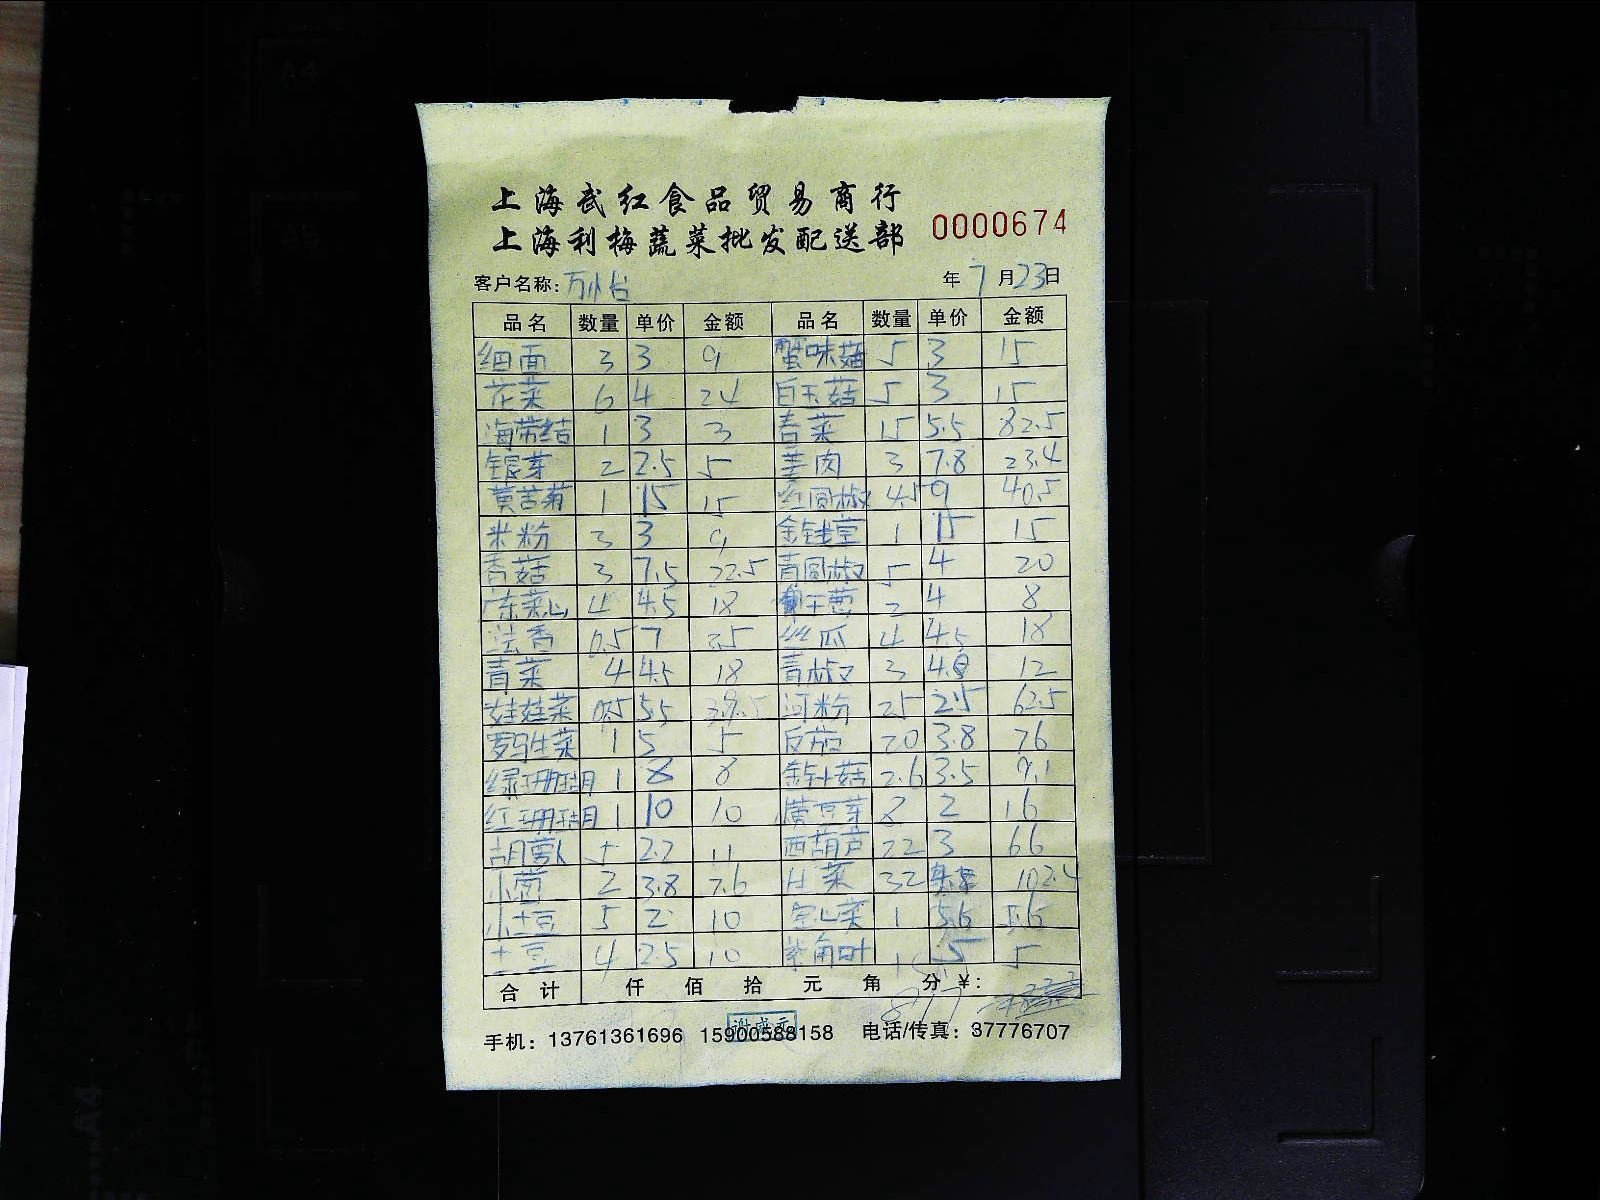 上海武红食品贸易商行
上海利梅蔬菜批发配送部 0000674
客户名称: 年 7 月 23 日
品名 数量 单价 金额 品名 数量 单价 金额
细面 3 3 9 蟹味菇 5 3 15
花菜 6 4 24 白玉菇 5 3 15
海带结 1 3 3 春菜 15 5.5 82.5
银芽 2 2.5 5 姜肉 3 7.8 23.4
黄苦菊 1 15 15 红圆椒 4.5 9 40.5
米粉 3 3 9 金钱 1 15 15
香菇 3 7.5 22.5 青圆椒 5 4 20
广东菜心 4 4.5 18 干葱 2 4 8
法香 0.5 7 3.5 丝瓜 4 4.5 18
青菜 4 4.5 18 青椒 3 4. 12
娃娃菜 5.5 河粉 25 2.5 62.5
罗马生菜 1 5 5 反茄 20 3.8 76
绿珊瑚 1 8 8 金针菇 2.6 3.5 9.1
红珊瑚 1 10 10 黄豆芽 8 2 16
胡萝卜 5 2.2 11 西葫芦 22 3 66
小茴 2 3.8 7.6 生菜 32 102.4
小土豆 5 2 10 空心菜 1 5.6 5.6
土豆 4 2.5 10 叶 1 5 5
合计 仟 佰 拾 元 角 分 ¥:
手机: 13761361696 15900588158 电话/传真: 37776707